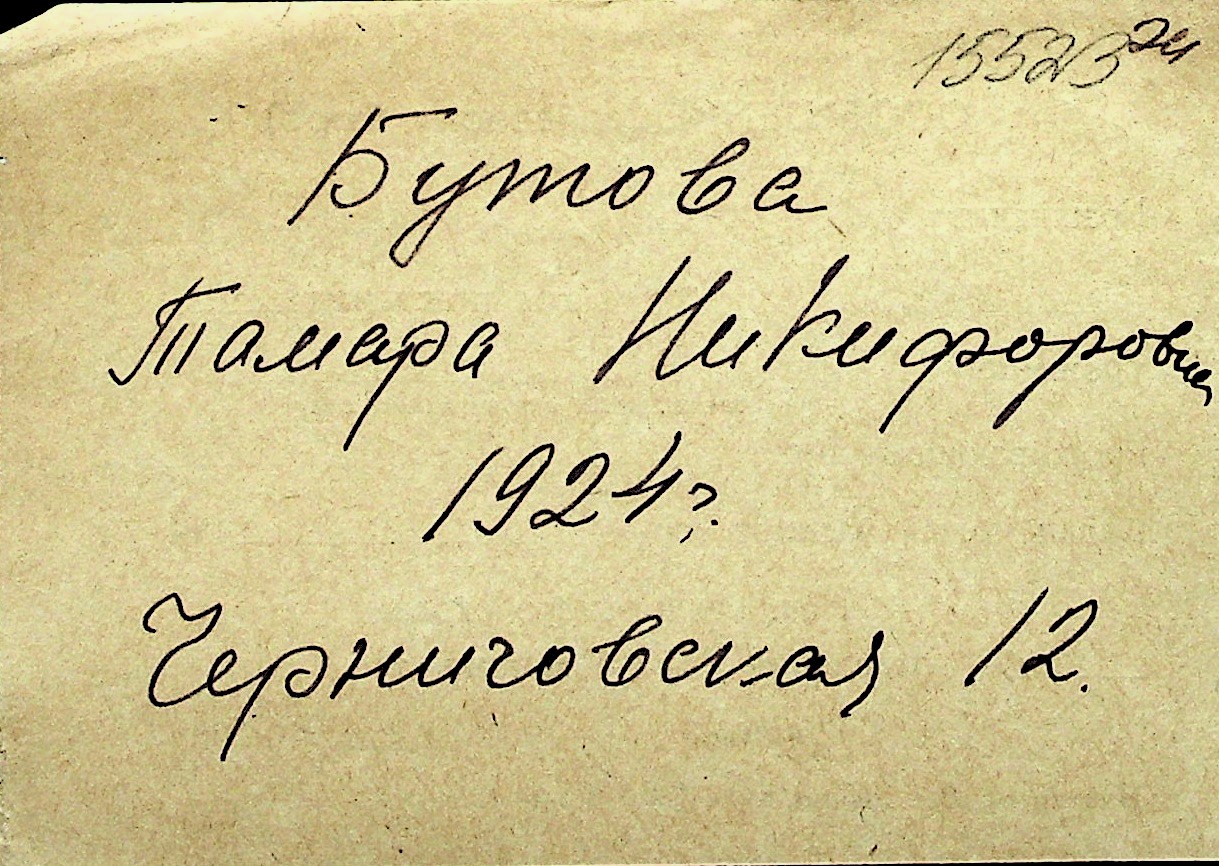 15523
Бутова
Тамара Никифоровна
1924 г.
Черниговская 12.